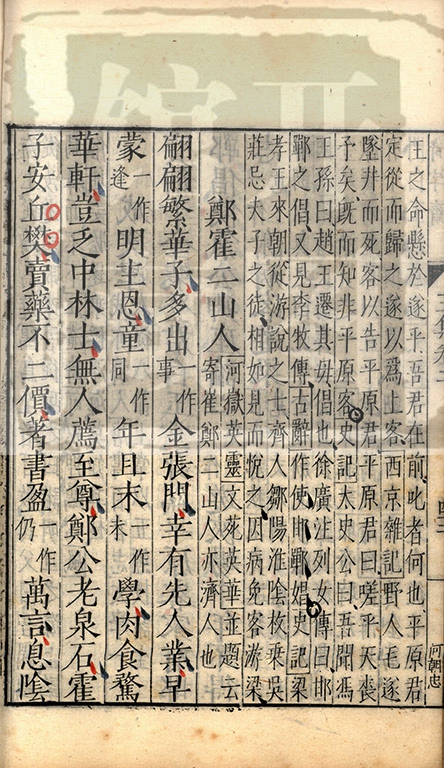 王之命懸於遂乎吾君在前叱者何也平原君
定從而歸之遂以爲上客西京雜記野人毛遂
墜井而死客以告平原君平原君曰嗟乎天喪
予矣旣而知非平原客史記太史公曰吾聞馮
王孫曰趙王遷其母倡也徐廣注列女傳曰邯
鄲之倡又見李牧傳古辭作使邯鄲娼史記梁
孝王來朝從游說之士齊人鄒陽淮陰枚乘吳
莊忌夫子之徒相如見而悅之因病免客游梁
鄭霍二山人河嶽英靈文苑英華並題云寄崔鄭二山人亦濟人也
翩翩繁華子多出一作事金張門幸有先人業早
蒙一作逢明主恩童一作同年且末一作未學肉食騖
華軒豈乏中林士無人薦至尊鄭公老泉石霍
子安丘樊賣藥不二價著書盈一作仍萬言息陰